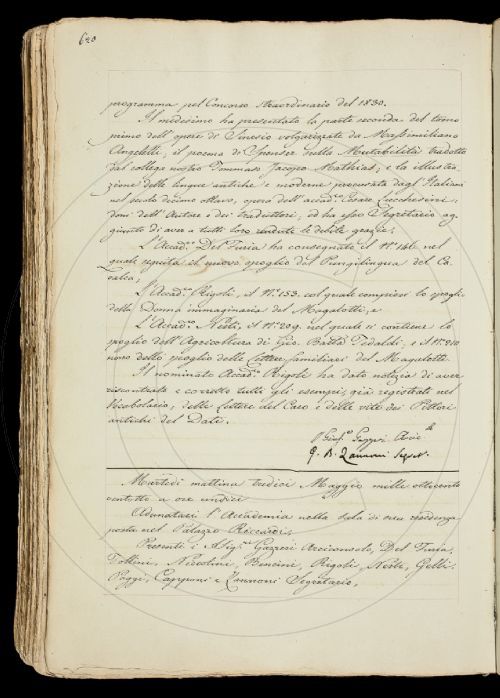 620
programma pel Concorso straordinario del 1830.
Il medesimo ha presentato la parte seconda del tomo
primo dell'opere di Sinesio volgarizzate da Massimiliano
Angelelli, il poema di Spenser sulla Mutabilità tradotto
dal collega nostro Tommaso Jacopo Mathias; e la illustra-
zione delle lingue antiche e moderne procurata dagl'Italiani
nel secolo decimo ottavo, opera dell'accad. Cesare Lucchesini;
doni dell'Autore e dei traduttori, ed ha esso Segretario ag-
giunto di aver a tutti loro rendute le debite grazie;
L'Accad.co Del Furia ha consegnato il N.o 146 nel
quale seguita il nuovo spoglio del Pungilingua del Ca-
valca;
L'Accad.co Rigoli, il N.o 153. col quale compiesi lo spoglio
della Donna immaginaria del Magalotti; e
L'Accad.co Nesti, il N.o 209. nel quale si contiene lo
spoglio dell'Agricoltura di Gio. Batta Tedaldi, e il N.o 210
nono dello spoglio delle Lettere familiari del Magalotti.
Il nominato Accad.co Rigoli ha dato notizia di aver
riscontrato e corretto tutti gli esempi, già registrati nel
Vocabolario, delle Lettere del Caro e delle vite dei Pittori
antichi del Dati.
G. B. Zannoni Segret.
Martedì mattina tredici Maggio mille ottocento
ventotto a ore undici
Adunatasi l'Accademia nella sala di sua residenza
posta nel Palazzo Riccardi;
Presenti i Sig.ri Gazzeri Arciconsolo, Del Furia,
Follini, Niccolini, Bencini, Rigoli, Nesti, Gelli,
Poggi, Capponi e Zannoni Segretario,